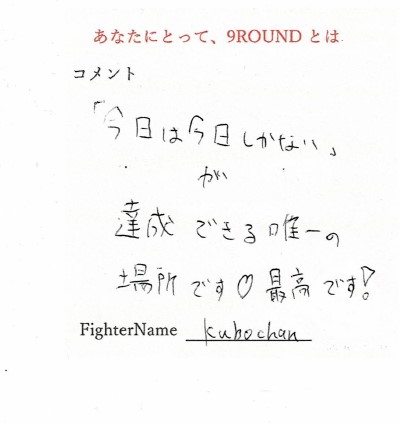 あなたにとって、9ROUND とは
コメント
「今日は今日しかない」
が
達成できる唯一の
場所です♡最高です!
FighterName kubochan